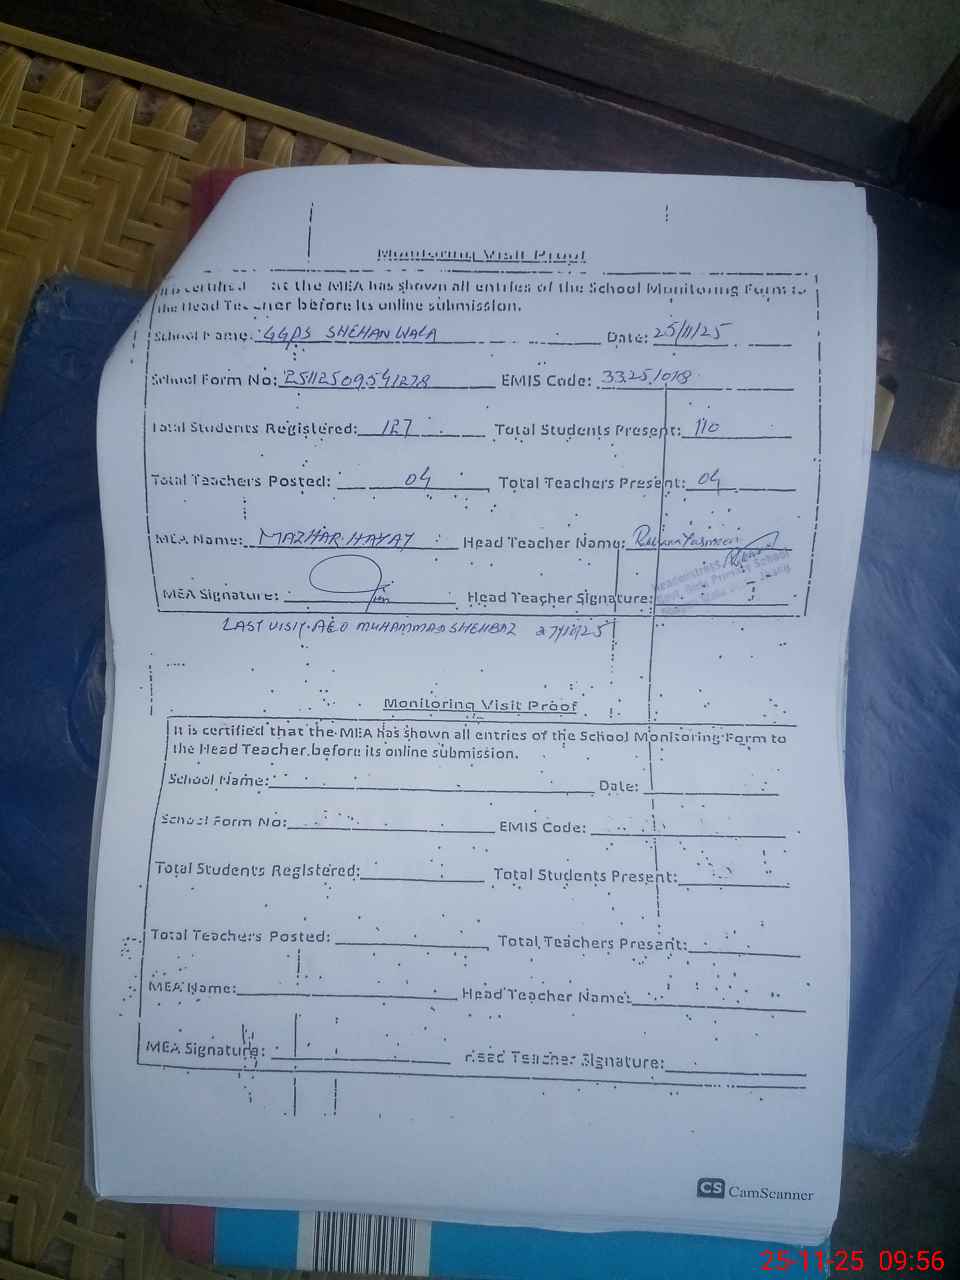 Monitoring Visit Proof
It is certified at the MEA has shown all entries of the School Monitoring Form to
the Head Teacher before its online submission.
School Name: GGPS SHEHANWALA Date: 25/11/25
School Form No: EMIS Code: 33251018
Total Students Registered: 127 Total Students Present: 110
Total Teachers Posted: 04 Total Teachers Present: 04
MEA Name: MAZHAR HAYAT Head Teacher Name: Yasmeen
Headmistress
Govt. Girls Primary School
MEA Signature: Head Teacher Signature:
LAST VISIT. AEO MUHAMMAD SHEHBAZ
Monitoring Visit Proof
It is certified that the MEA has shown all entries of the School Monitoring Form to
the Head Teacher before its online submission.
School Name: Date:
School Form No: EMIS Code:
Total Students Registered: Total Students Present:
Total Teachers Posted: Total Teachers Present:
MEA Name: Head Teacher Name:
MEA Signature: Head Teacher Signature:
CS CamScanner
25-11-25 09:56